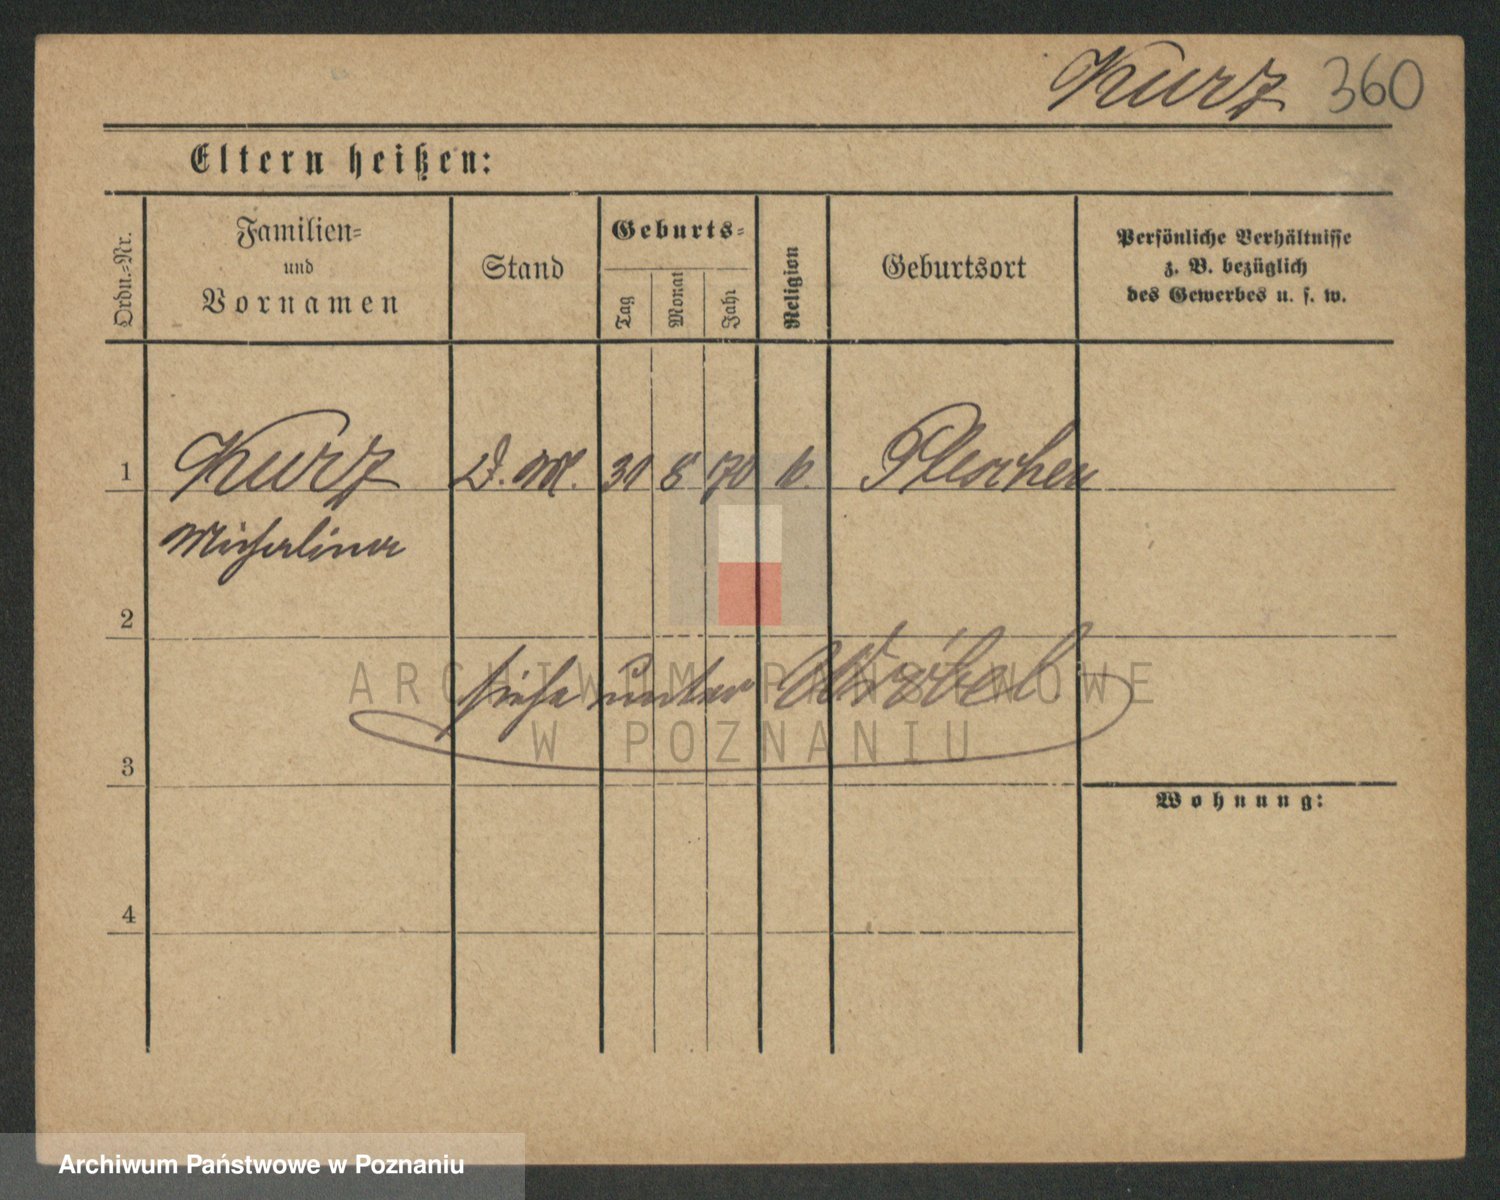 Kurz 360
Eltern heißen:
Ordn.-Nr.
Familien-
und
Vornamen
Stand
Geburts-
Tag
Monat
Jahr
Religion
Geburtsort
Persönliche Verhältnisse
z. B. bezüglich
des Gewerbes u. s. w.
1 Kurz D. M. 31 8 70 k. Pleschen
Michalina
2
siehe unter Wróbel
ARCHIWUM PAŃSTWOWE
W POZNANIU
3
Wohnung:
4
Archiwum Państwowe w Poznaniu